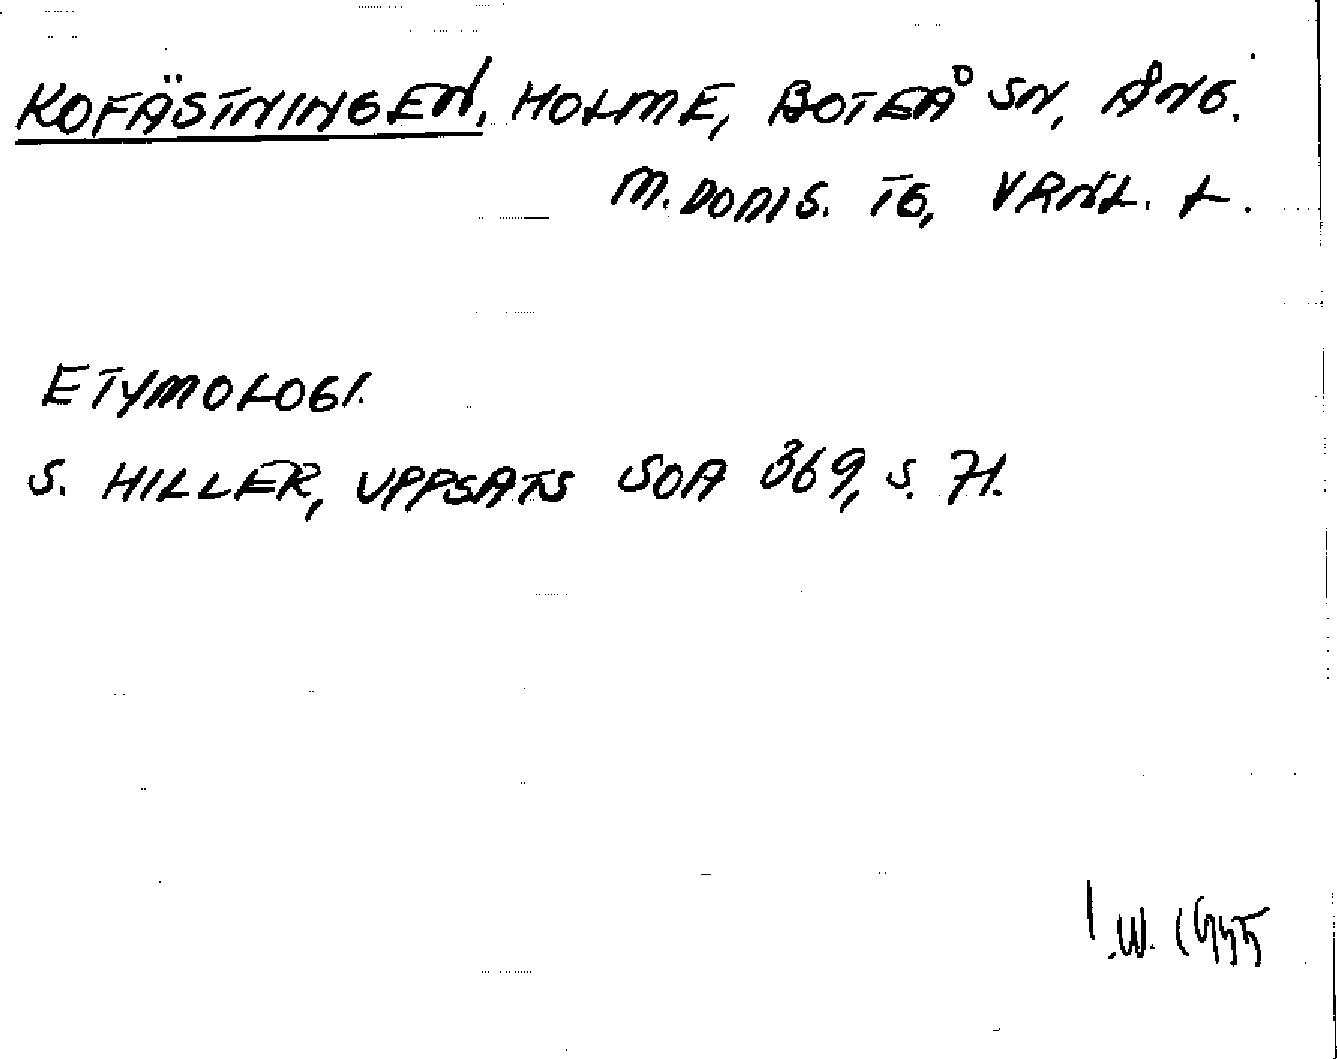 KOFÄSTNINGEN, HOLME, BOTEÅ SN, ÅNG.
M. DOMS. TG, L.
ETYMOLOGI.
S. HILLER, UPPSATS SOA 369, S. 71.
I.W.